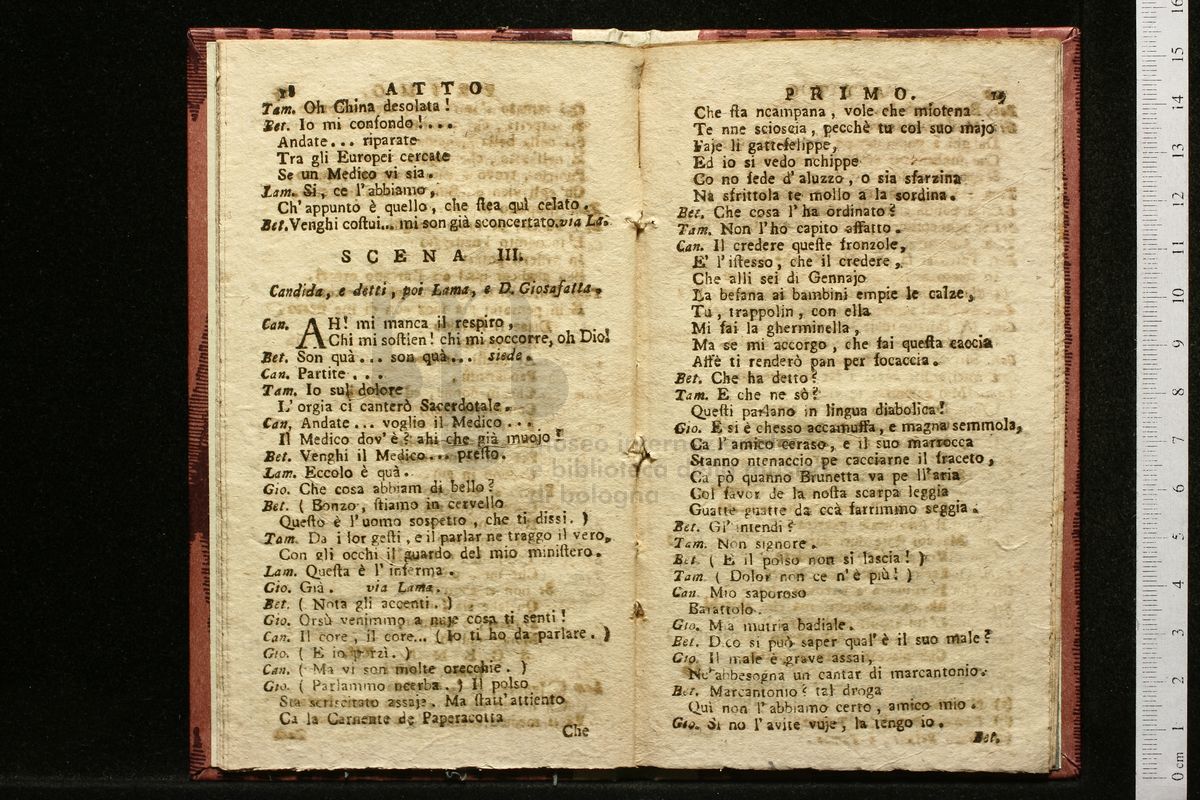 18
ATTO
Tam. Oh China desolata!
Bet. Io mi confondo!...
Andate... riparate
Tra gli Europei cercate
Se un Medico vi sia.
Lam. Si, ce l'abbiamo,
Ch'appunto è quello, che stea quì celato.
Bet. Venghi costui... mi son già sconcertato. via La.
SCENA III.
Candida, e detti, poi Lama, e D. Giosafatta.
Can. AH! mi manca il respiro,
Chi mi sostien! chi mi soccorre, oh Dio!
Bet. Son quà... son quà... siede.
Can. Partite...
Tam. Io sul dolore
L'orgia ci canterò Sacerdotale.
Can, Andate... voglio il Medico...
Il Medico dov'è? ahi che già muojo?
Bet. Venghi il Medico... presto.
Lam. Eccolo è quà.
Gio. Che cosa abbiam di bello?
Bet. (Bonzo, stiamo in cervello
Questo è l'uomo sospetto, che ti dissi.)
Tam. Da i lor gesti, e il parlar ne traggo il vero,
Con gli occhi il guardo del mio ministero.
Lam. Questa è l'inferma.
Gio. Già. via Lama.
Bet. (Nota gli accenti.)
Gio. Orsù venimmo a nuje cosa ti senti!
Can. Il core, il core... (Io ti ho da parlare.)
Gio. (E io porzì.)
Can. (Ma vi son molte orecchie.)
Gio. (Parlammo ncerba.) Il polso
Sta scriscitato assaje. Ma statt'attiento
Ca la Carnente de Paperacotta
Che
PRIMO.
19
Che sta ncampana, vole che miotena
Te nne scioscia, pecchè tu col suo majo
Faje li gattefelippe,
Ed io si vedo nchippe
Co no fede d'aluzzo, o sia sfarzina
Na sfrittola te mollo a la sordina.
Bet. Che cosa l'ha ordinato?
Tam. Non l'ho capito affatto.
Can. Il credere queste fronzole,
E' l'istesso, che il credere,
Che alli sei di Gennajo
La befana ai bambini empie le calze,
Tu, trappolin, con ella
Mi fai la gherminella,
Ma se mi accorgo, che fai questa caccia
Affè ti renderò pan per focaccia.
Bet. Che ha detto?
Tam. E che ne sò?
Questi parlano in lingua diabolica!
Gio. E si è chesso accamuffa, e magna semmola,
Ca l'amico ceraso, e il suo marrocca
Stanno ntenaccio pe cacciarne il fraceto,
Ca pò quanno Brunetta va pe ll'aria
Col favor de la nosta scarpa leggia
Guatte guatte da ccà farrimmo seggia.
Bet. Gl'intendi?
Tam. Non signore.
Bet. (E il polso non si lascia!)
Tam (Dolor non ce n'è più!)
Can. Mio saporoso
Barattolo.
Gio. Mia mutria badiale.
Bet. Dico si può saper qual'è il suo male?
Gio. Il male è grave assai,
Nc'abbesogna un cantar di marcantonio.
Bet. Marcantonio? tal droga
Quì non l'abbiamo certo, amico mio.
Gio. Si no l'avite vuje, la tengo io.
Bet.